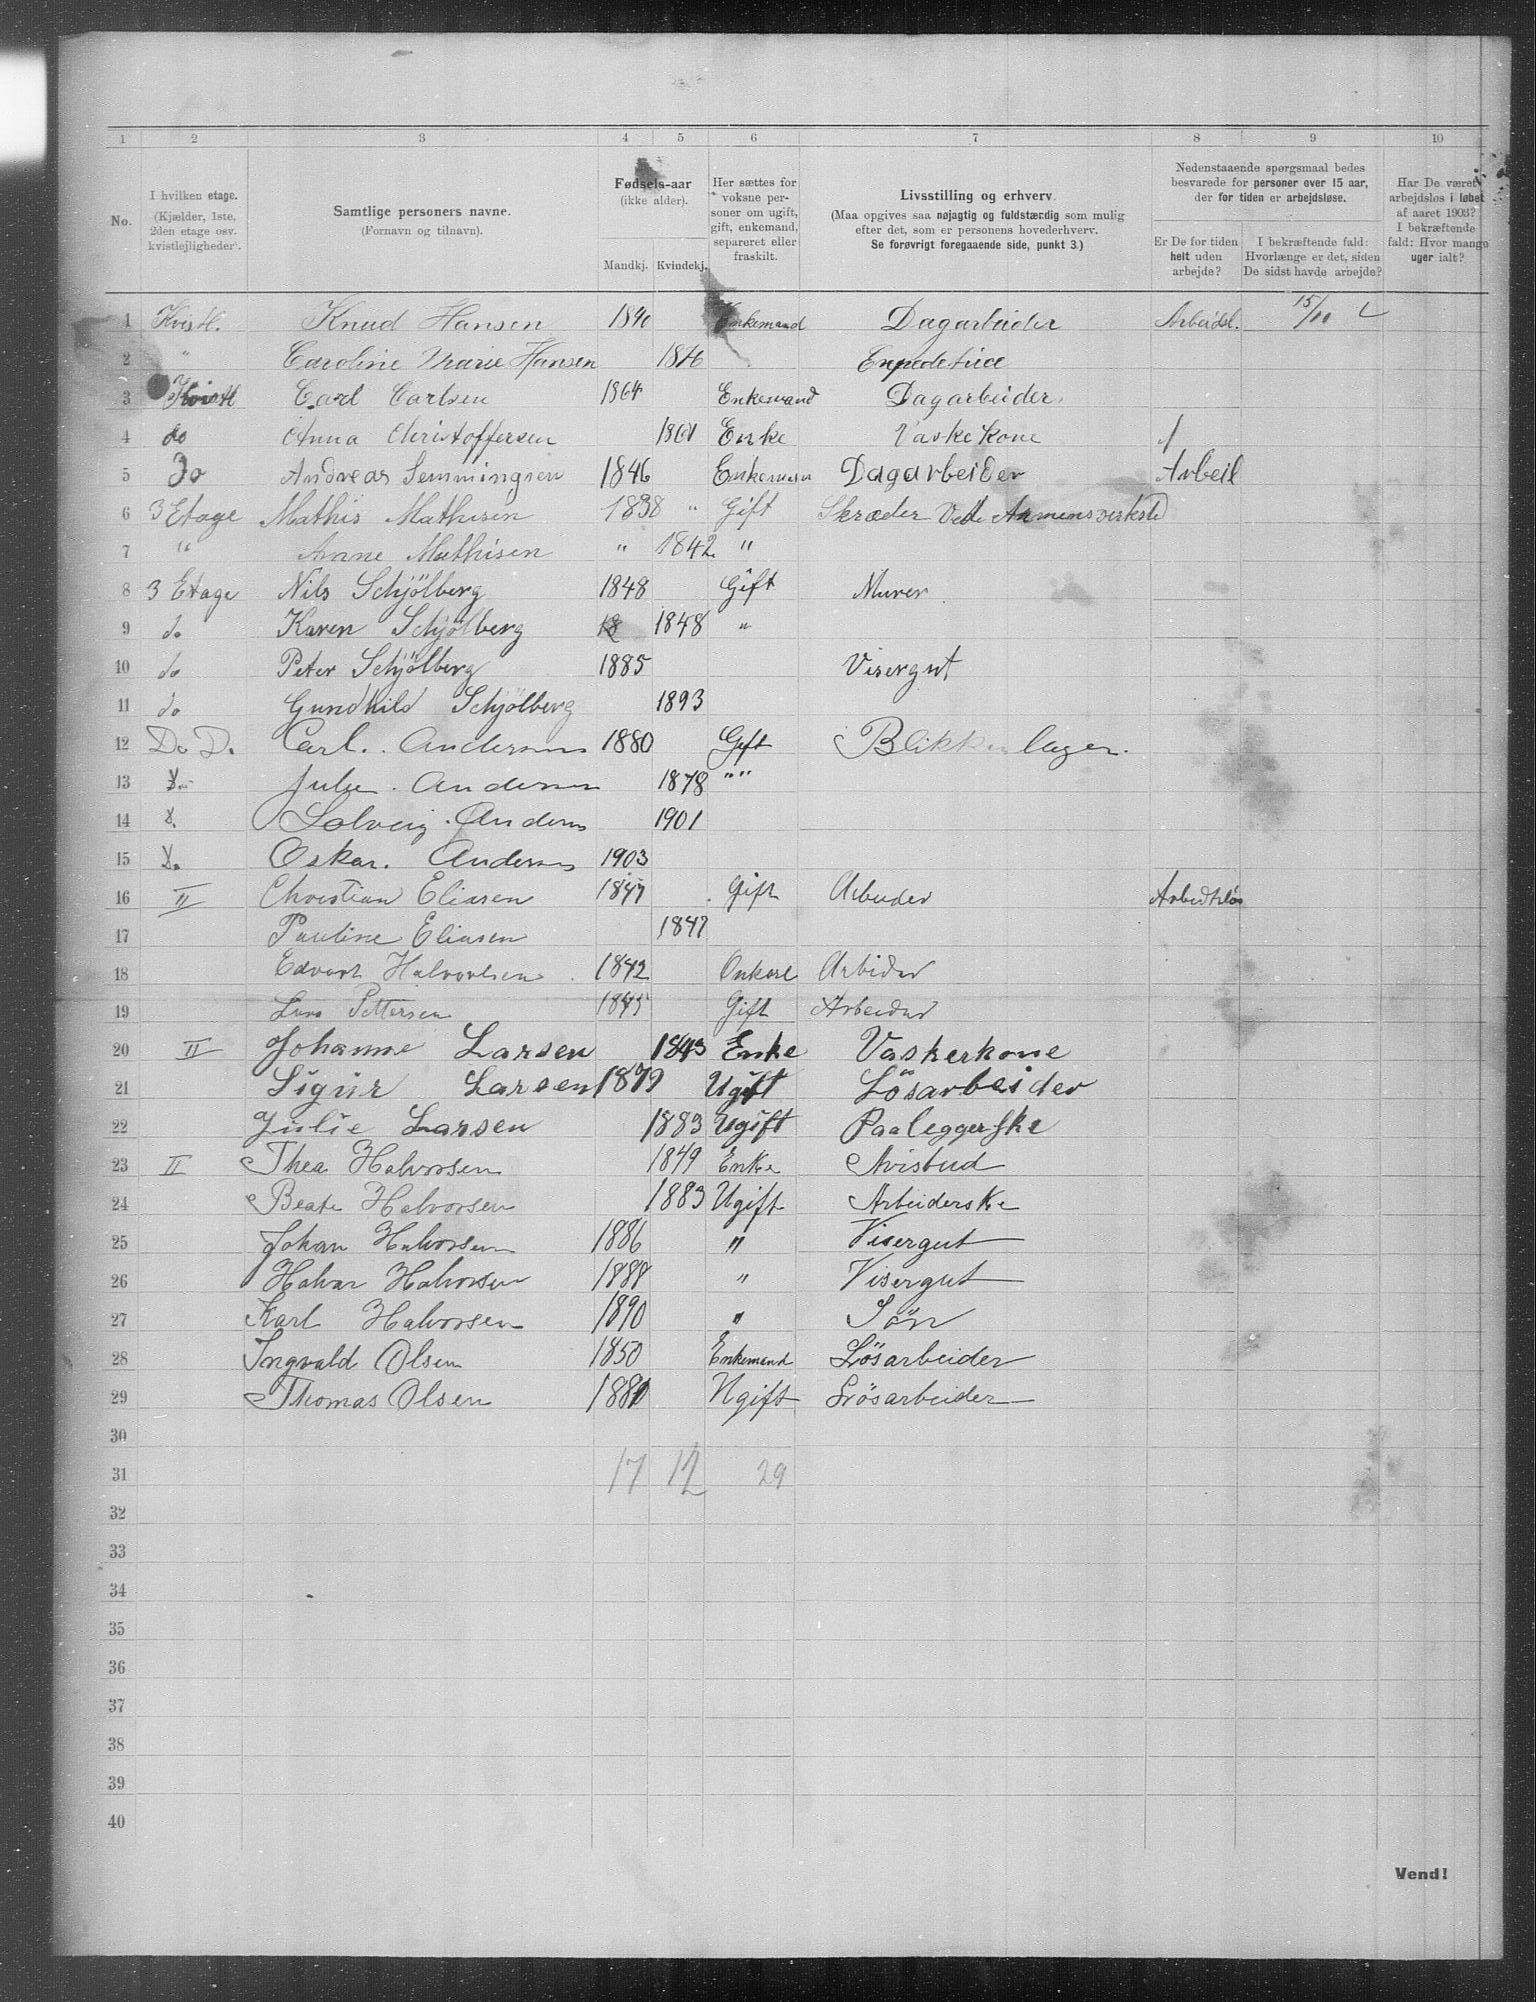 1 2 3 4 5 6 7 8 9 10
No.
I hvilken etage. (Kjælder, 1ste, 2den etage osv. kvistlejligheder).
Samtlige personers navne. (Fornavn og tilnavn).
Fødsels-aar (ikke alder).
Mandkj. Kvindekj.
Her sættes for voksne personer om ugift, gift, enkemand, separeret eller fraskilt.
Livsstilling og erhverv.
(Maa opgives saa nøjagtig og fuldstændig som mulig efter det, som er personens hovederhverv.
Se forøvrigt foregaaende side, punkt 3.)
Nedenstaaende spørgsmaal bedes besvarede for personer over 15 aar, der for tiden er arbejdsløse.
Er De for tiden helt uden arbejde?
I bekræftende fald: Hvorlænge er det, siden De sidst havde arbejde?
Har De været arbejdsløs i løbet af aaret 1903? I bekræftende fald: Hvor mange uger ialt?
1 Kvistl. Knud Hansen 1840 Enkemand Dagarbeider Arbeidsl. 15/10
2 " Caroline Marie Hansen 1876
3 Kvistl Carl Carlsen 1864 Enkemand Dagarbeider.
4 do Anna Christoffersen 1861 Enke Vaskekone
5 Do Andreas Semmingsen 1846 Enkemann Dagarbeider Arbeil
6 3 Etage Mathis Mathisen 1838 " Gift Skræder Ved Armensverksted
7 " Anne Mathisen " 1842 "
8 3 Etage Nils Schjölberg 1848 Gift Murer
9 do Karen Schjölberg 18 1848 "
10 do Peter Schjölberg 1885 Visergut
11 do Gundhild Schjölberg 1893
12 Do Do Carl. Andersen 1880 Gift Blikkenslager.
13 Do Julie. Andersen 1878 " "
14 D. Solveig. Anders 1901
15 Do Oskar. Andersen 1903
16 II Christian Eliasen 1847 Gift Arbeider Arbedslös
17 Pauline Eliasen 1847
18 Edvart Halvorsen 1842 Arbider
19 Pettersen 1845 Gift Arbeider
20 II Johanne Larsen 1843 Enke Vaskerkone
21 Sigur Larsen 1879 Ugift Lösarbeider
22 Julie Larsen 1883 Ugift Paaleggerske
23 II Thea Halvorsen 1849 Enke Avisbud
24 Beate Halvorsen 1883 Ugift Arbeiderske
25 Johan Halvorsen 1886 " Visergut
26 Halvar Halvorsen 1888 " Visergut
27 Karl Halvorsen 1890 " Sön
28 Ingvald Olsen 1850 Enkemand Lösarbeider
29 Thomas Olsen 1881 Ugift Lösarbeider
30
31 17 12 29
32
33
34
35
36
37
38
39
40
Vend!